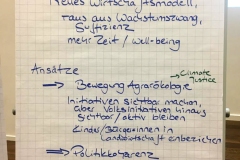 Neues Wirtschaftsmodell,
raus aus Wachstumszwang,
Suffizienz
mehr Zeit / well-being
Ansätze
Climate
Justice
→ Bewegung Agrarökologie
Initiativen sichtbar machen,
über Volksinitiativen hinaus
sichtbar / aktiv bleiben
Kinder / Bürgerinnen in
Landwirtschaft einbeziehen
→ Politikkohärenz